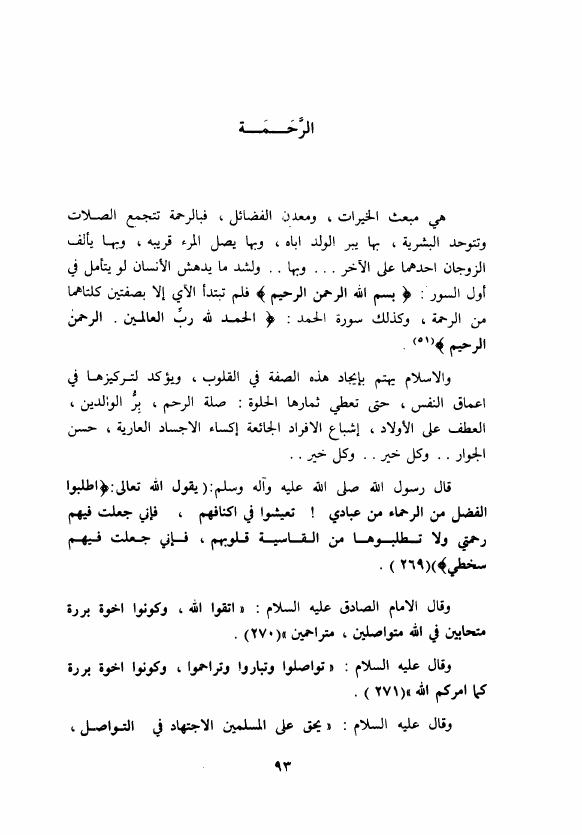 الرَّحَـــمَـــة
هي مبعث الخيرات ، ومعدن الفضائل ، فبالرحمة تتجمع الصلات
وتتوحد البشرية ، بها يبر الولد اباه ، وبها يصل المرء قريبه ، وبهـا يألف
الزوجان احدهما على الآخر ... وبها .. ولشد ما يدهش الأنسان لو يتأمل في
أول السور : ﴿ بسم الله الرحمن الرحيم ﴾ فلم تبتدأ الآي إلا بصفتين كلتاهما
من الرحمة ، وكذلك سورة الحمد : ﴿ الحمـد لله ربِّ العالمـين . الرحمن
الرحيم ﴾(٥١) .
والاسلام يهتم بإيجاد هذه الصفة في القلوب ، ويؤكد لتـركيزهـا في
اعماق النفس ، حتى تعطي ثمارها الحلوة : صلة الرحم ، بِرُّ الوالدين ،
العطف على الأولاد ، إشباع الافراد الجائعة إكساء الاجساد العارية ، حسن
الجوار .. وكل خير .. وكل خير ..
قال رسول الله صلى الله عليه وآله وسلم:(يقول الله تعالى:﴿اطلبوا
الفضل من الرحماء من عبادي ! تعيشوا في اكنافهم ، فإني جعلت فيهم
رحمتي ولا تـطلبـوهـا من القـاسيـة قلـوبهم ، فـإني جـعلت فيـهم
سخطي﴾)(٢٦٩) .
وقال الامام الصادق عليه السلام : « اتقوا الله ، وكونوا اخوة بررة
متحابين في الله متواصلين ، متراحمين »(٢٧٠) .
وقال عليه السلام : « تواصلوا وتباروا وتراحموا ، وكونوا اخوة بررة
كما امركم الله »(٢٧١) .
وقال عليه السلام : « يحق على المسلمين الاجتهاد في التواصـل ،
٩٣